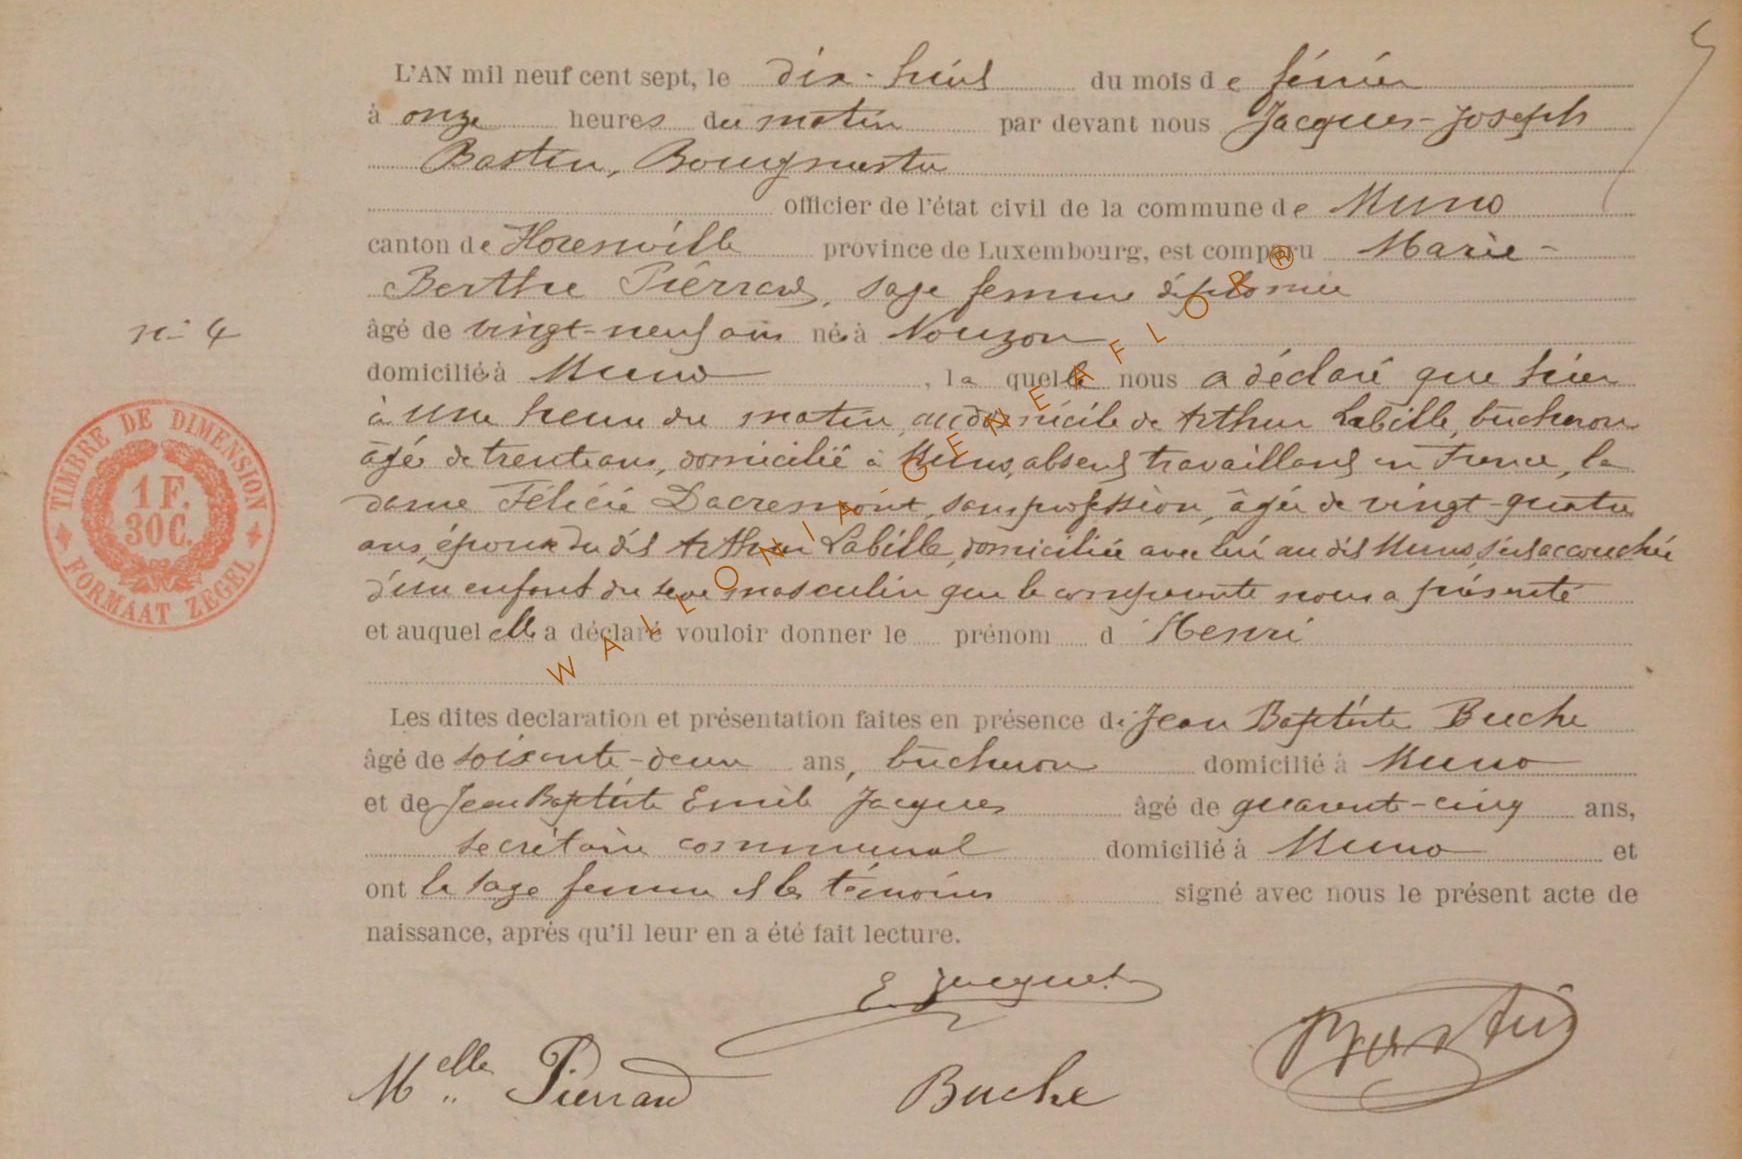 L'AN mil neuf cent sept, le dix-huit du mois de février
à onze heures du matin par devant nous Jacques-Joseph
Bastin, Bourgmestre
officier de l'état civil de la commune de Muno
canton de Florenville province de Luxembourg, est comparu Marie-
Berthe Pierrard, sage femme diplomée
âgé de vingt-neuf ans née à Nouzon
n° 4
domiciliée à Muno, la quelle nous a déclaré que hier
à une heure du matin, au domicile de Arthur Labille, bûcheron
âgé de trente ans, domicilié à Muno, absent travaillant en France, la
dame Félicie Dacremont, sans profession, âgée de vingt-quatre
ans, épouse du dit Arthur Labille, domiciliée avec lui au dit Muno, s'est accouchée
d'un enfant du sexe masculin que la comparante nous a présenté
et auquel elle a déclaré vouloir donner le prénom d'Henri
Les dites declaration et présentation faites en présence de Jean Baptiste Buche
âgé de soixante-deux ans, bûcheron domicilié à Muno
et de Jean Baptiste Emile Jacques âgé de quarante-cinq ans,
secrétaire communal domicilié à Muno et
ont la sage femme et les témoins signé avec nous le présent acte de
naissance, après qu'il leur en a été fait lecture.
E. Jacques
Bastin
Melle Pierrard
Buche
TIMBRE DE DIMENSION
1 F.
30 C.
FORMAAT ZEGEL
WALLONIA GENEAFLOR®